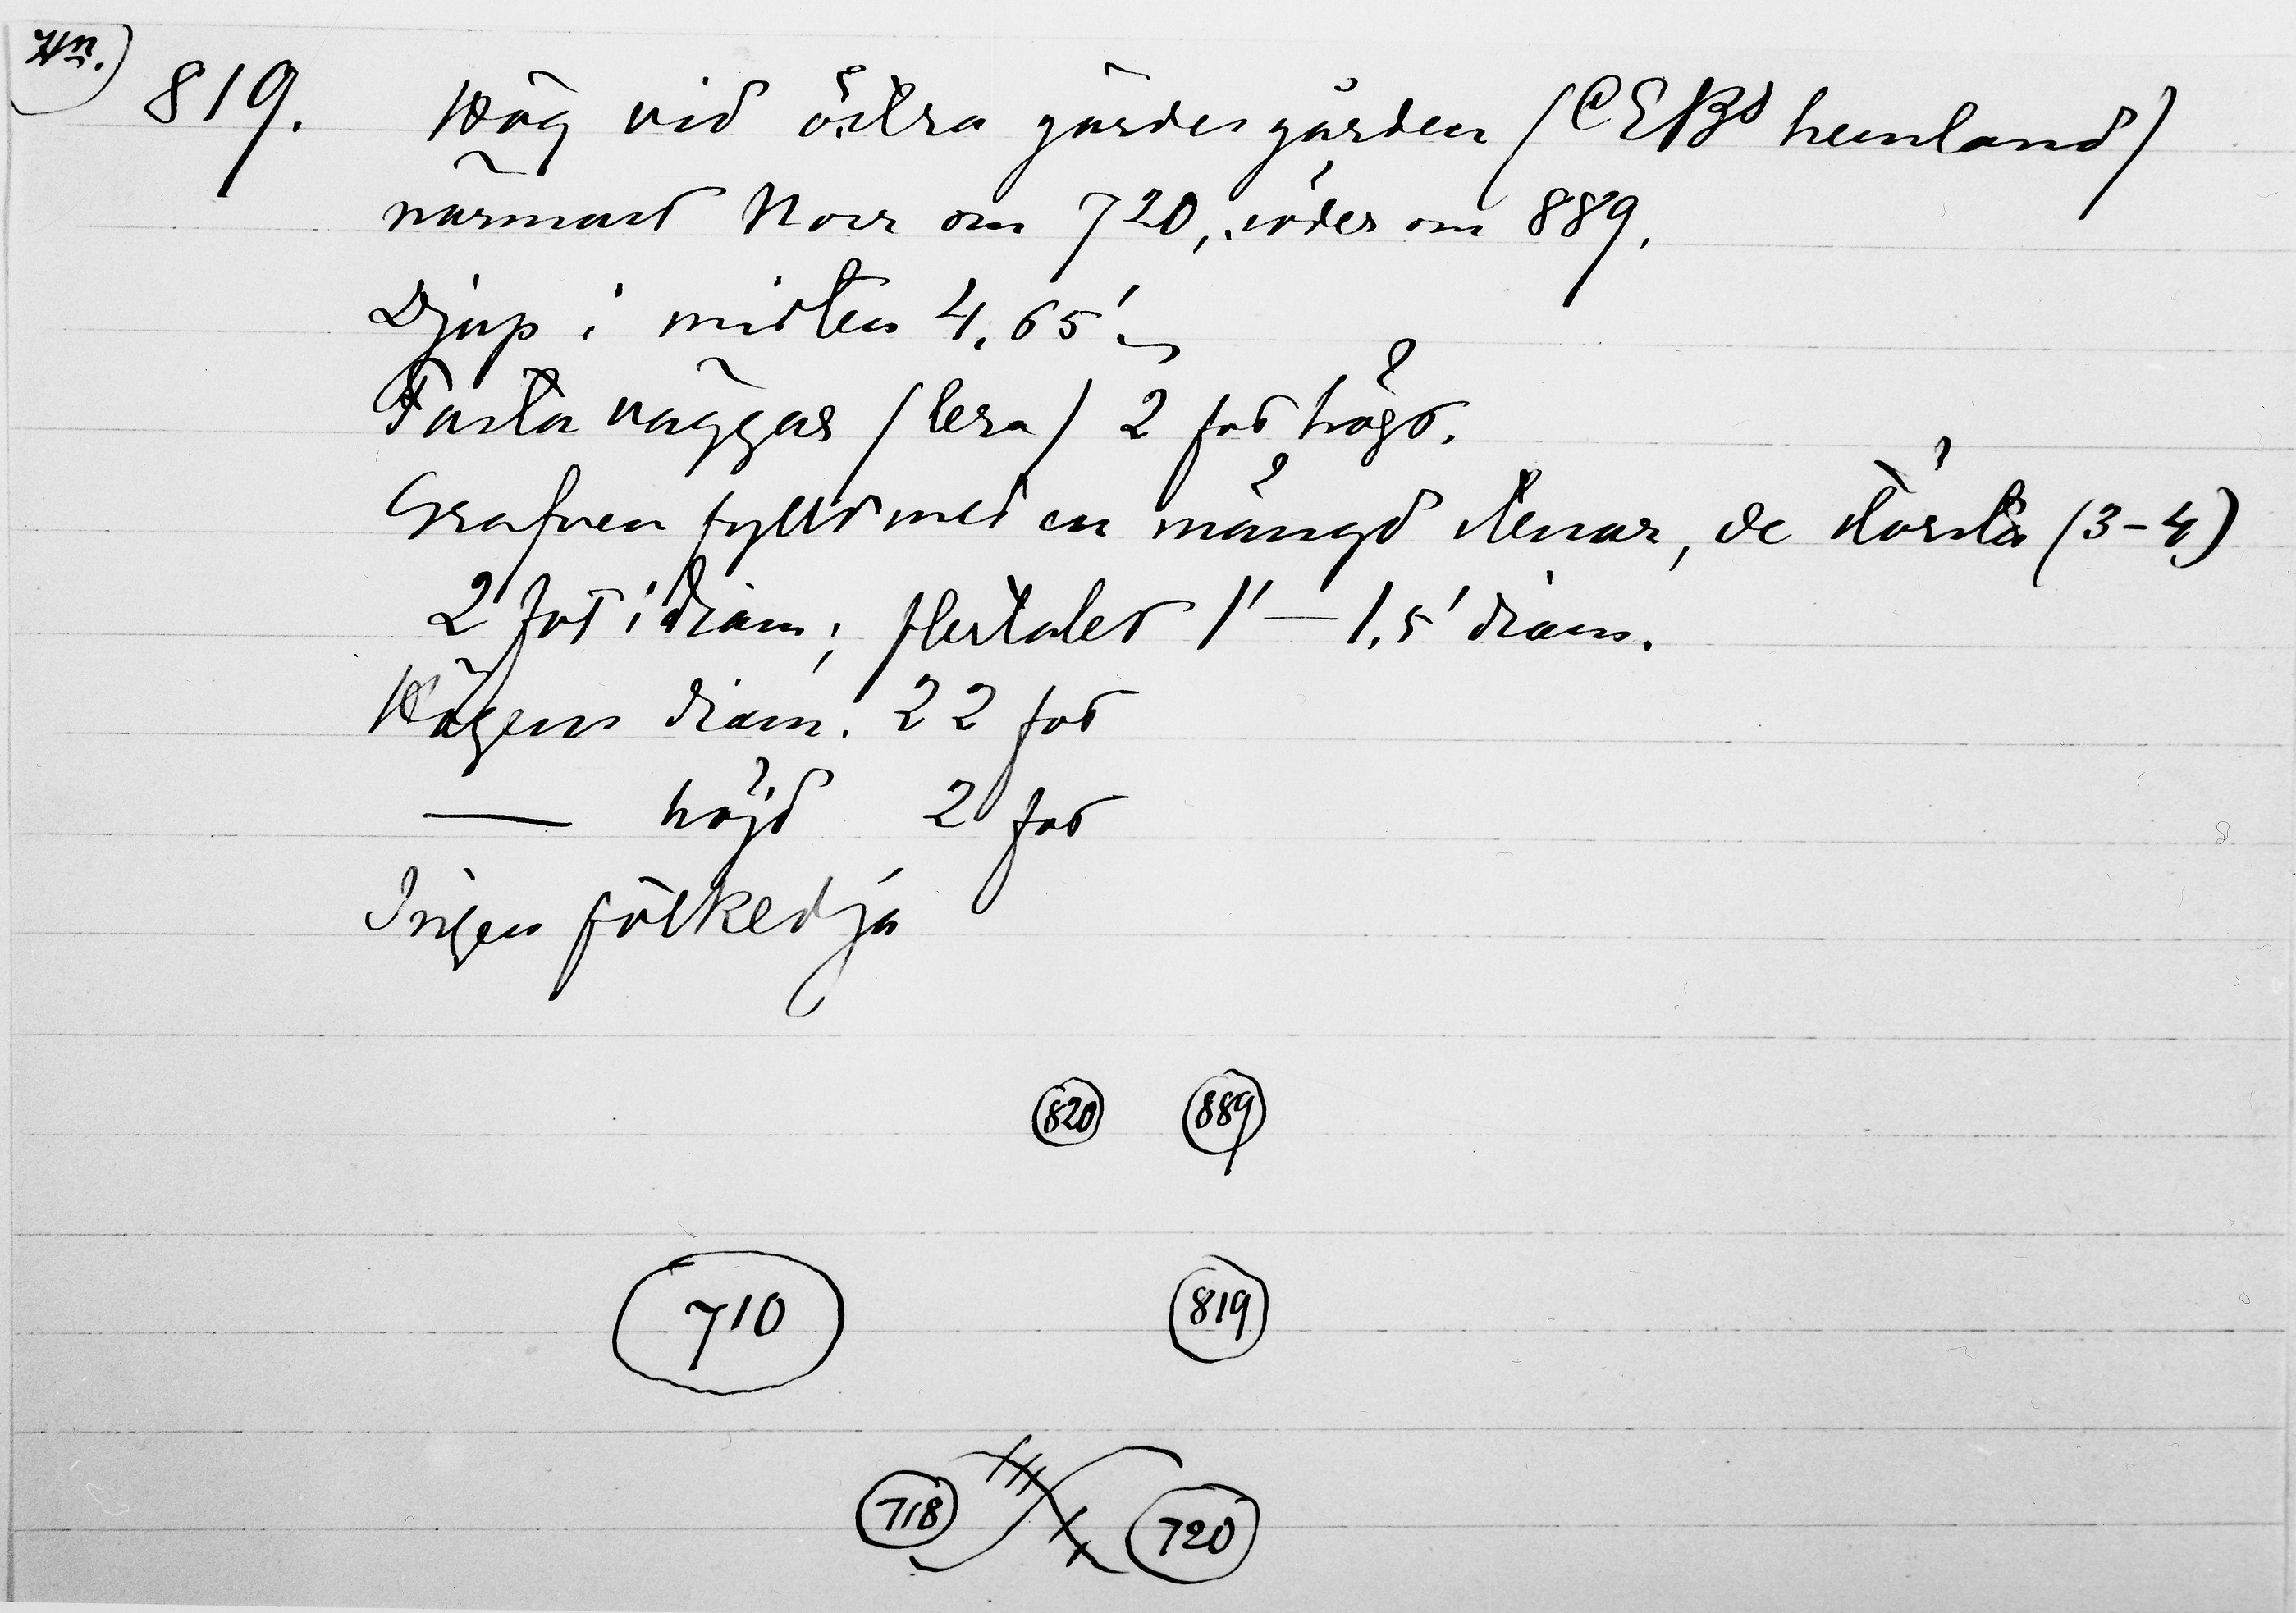 Hn.)
819. Hög vid östra gärdesgården (CEBs hemland)
närmast Norr om 720, söder om 889.
Djup i midten 4,65'
Fasta väggar (lera) 2 fot högt.
Grafven fylld med en mängd stenar, de största (3-4)
2 fot i diam; flertalet 1' — 1,5' diam.
Högens diam. 22 fot
— höjd 2 fot
Ingen fotkedja
820 889
710 819
718 720